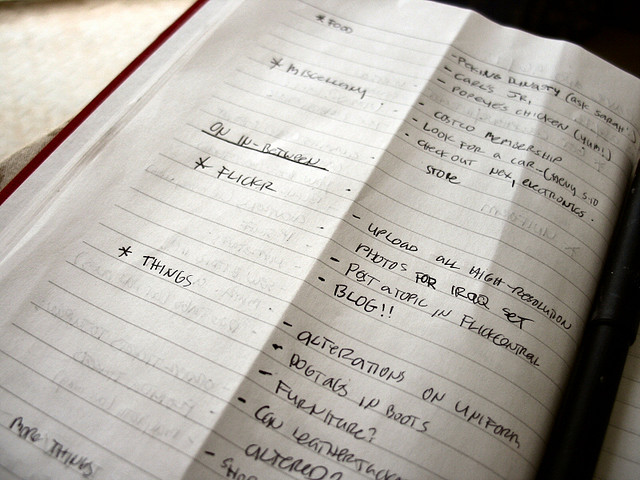 * FOOD
- PEKING DYNASTY (ASK SARAH)
- CARL'S JR.
- POPEYE'S CHICKEN (YUM!)
* MISCELLANY:
- COSTCO MEMBERSHIP
- LOOK FOR A CAR-(CHEVY S-10
- CHECK OUT NEX, ELECTRONICS.
STORE
ON IN-BETWEEN
* FLICKR
- UPLOAD ALL HIGH-RESOLUTION
PHOTOS FOR IRAQ SET
- POST A TOPIC IN FLICKCENTRAL
- BLOG!!
* THINGS
- ALTERATIONS ON UNIFORM
- DOGTAGS IN BOOTS
- FURNITURE?
- CAN LEATHER JACK
ALTERED?
MORE THINGS